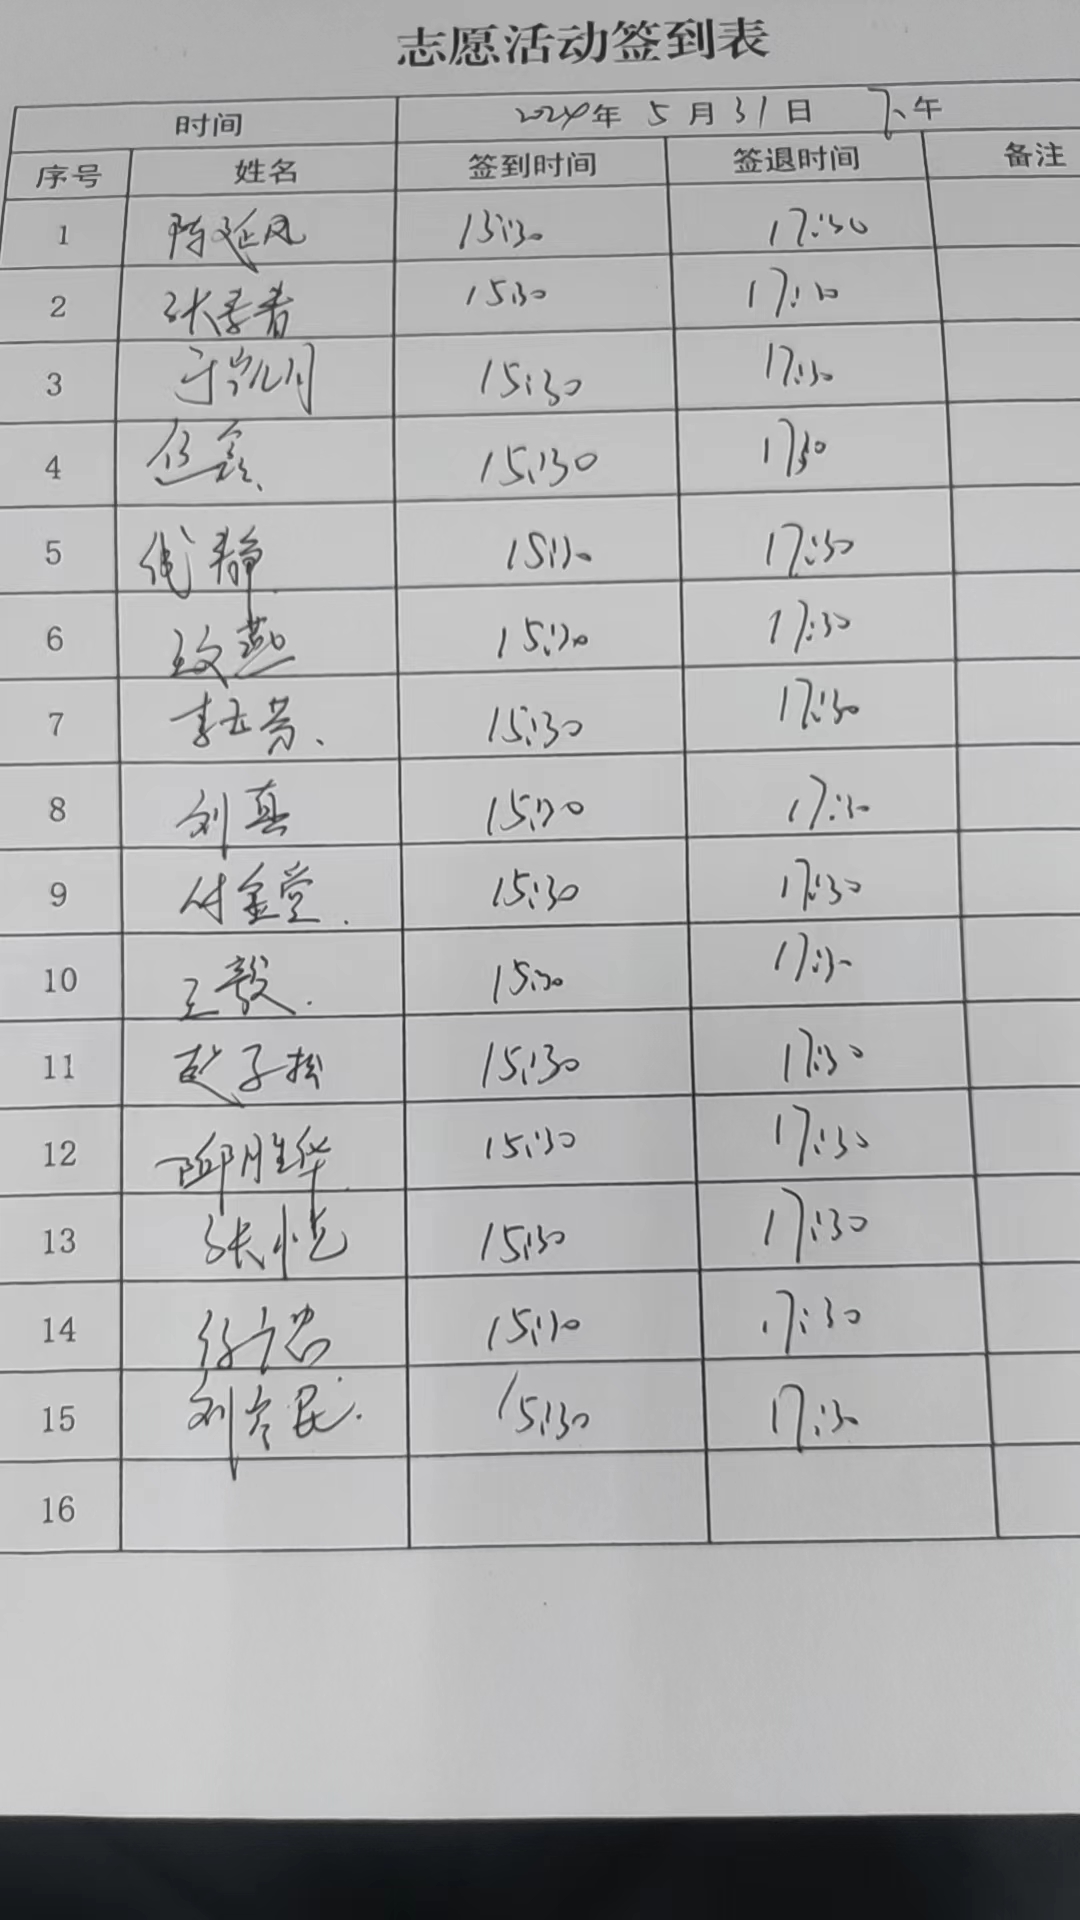 志愿活动签到表
时间 2024年 5 月 31 日 下午
序号 姓名 签到时间 签退时间 备注
1 陈延风 15:30 17:30
2 张秀青 15:30 17:30
3 于凯月 15:30 17:30
4 15:30 17:30
5 静 15:30 17:30
6 玫燕 15:30 17:30
7 李玉芳、 15:30 17:30
8 刘真 15:30 17:30
9 付金堂. 15:30 17:30
10 王毅. 15:30 17:30
11 赵子松 15:30 17:30
12 邱胜华 15:30 17:30
13 张恺 15:30 17:30
14 徐广忠 15:30 17:30
15 刘 民. 15:30 17:30
16